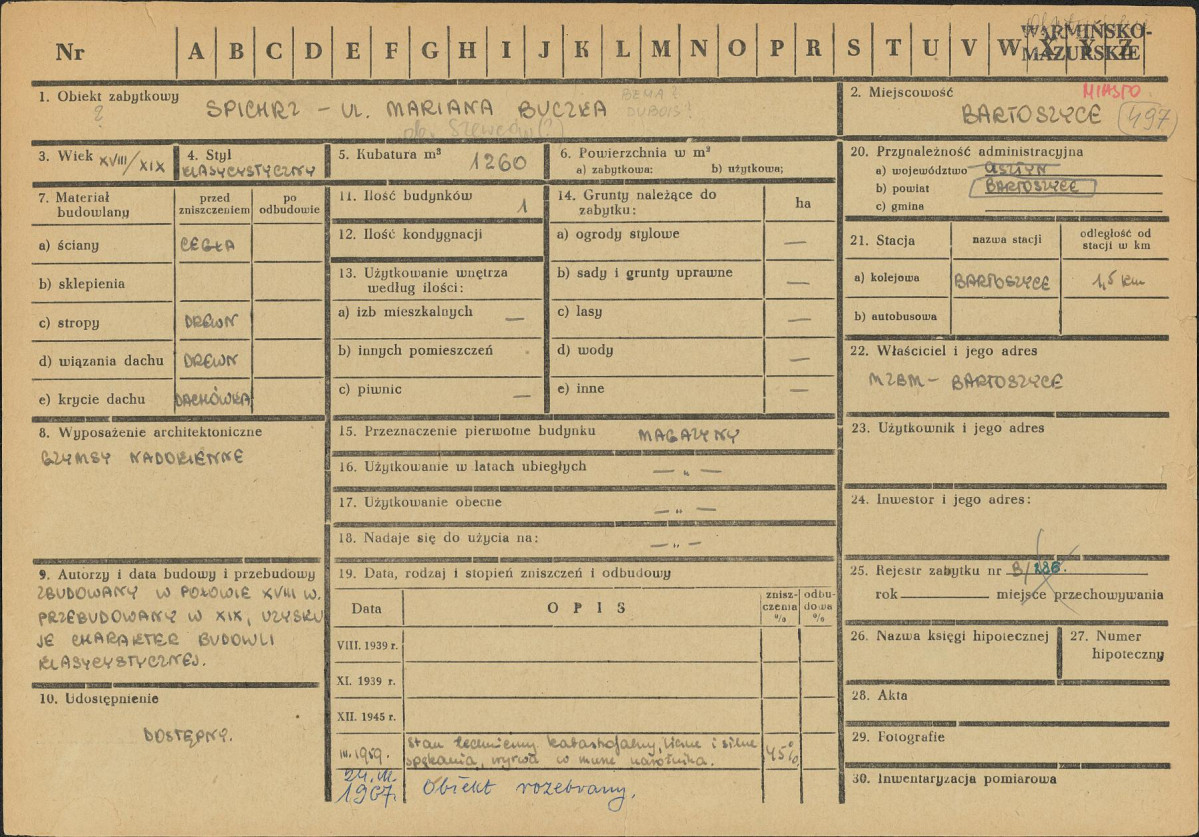 Nr A B C D E F G H I J K L M N O P R S T U V W X Y Z
WARMIŃSKO-
MAZURSKIE
1. Obiekt zabytkowy
?
SPICHRZ – UL. MARIANA BUCZKA
BEMA?
DUBOIS?
ob. Szewców (?)
2. Miejscowość
MIASTO
BARTOSZYCE 497
3. Wiek XVIII/XIX
4. Styl
KLASYCYSTYCZNY
5. Kubatura m³ 1260
6. Powierzchnia w m²
a) zabytkowa: b) użytkowa;
20. Przynależność administracyjna
a) województwo OLSZTYN
b) powiat BARTOSZYCE
c) gmina
7. Materiał budowlany
przed zniszczeniem
po odbudowie
a) ściany CEGŁA
b) sklepienia
c) stropy DREWN
d) wiązania dachu DREWN
e) krycie dachu DACHÓWKA
11. Ilość budynków 1
12. Ilość kondygnacji
13. Użytkowanie wnętrza
według ilości:
a) izb mieszkalnych —
b) innych pomieszczeń
c) piwnic —
14. Grunty należące do
zabytku: ha
a) ogrody stylowe —
b) sady i grunty uprawne —
c) lasy —
d) wody —
e) inne —
21. Stacja
nazwa stacji
odległość od
stacji w km
a) kolejowa BARTOSZYCE 1,5 km
b) autobusowa
22. Właściciel i jego adres
MZBM – BARTOSZYCE
8. Wyposażenie architektoniczne
GZYMSY NADOKIENNE
15. Przeznaczenie pierwotne budynku MAGAZYNY
16. Użytkowanie w latach ubiegłych — „ —
17. Użytkowanie obecne — „ —
18. Nadaje się do użycia na: — „ —
23. Użytkownik i jego adres
24. Inwestor i jego adres:
9. Autorzy i data budowy i przebudowy
ZBUDOWANY W POŁOWIE XVIII W.
PRZEBUDOWANY W XIX, UZYSKU
JE CHARAKTER BUDOWLI
KLASYCYSTYCZNEJ.
10. Udostępnienie
DOSTĘPNY.
19. Data, rodzaj i stopień zniszczeń i odbudowy
Data OPIS
znisz-
czenia
%
odbu-
dowa
%
VIII. 1939 r.
XI. 1939 r.
XII. 1945 r.
III. 1959. Stan techniczny katastrofalny, liczne i silne
spękania, wyrwa w murze narożnika. 45%
24.III.
1967. Obiekt rozebrany.
25. Rejestr zabytku nr B/286.
rok miejsce przechowywania
26. Nazwa księgi hipotecznej
27. Numer
hipoteczny
28. Akta
29. Fotografie
30. Inwentaryzacja pomiarowa